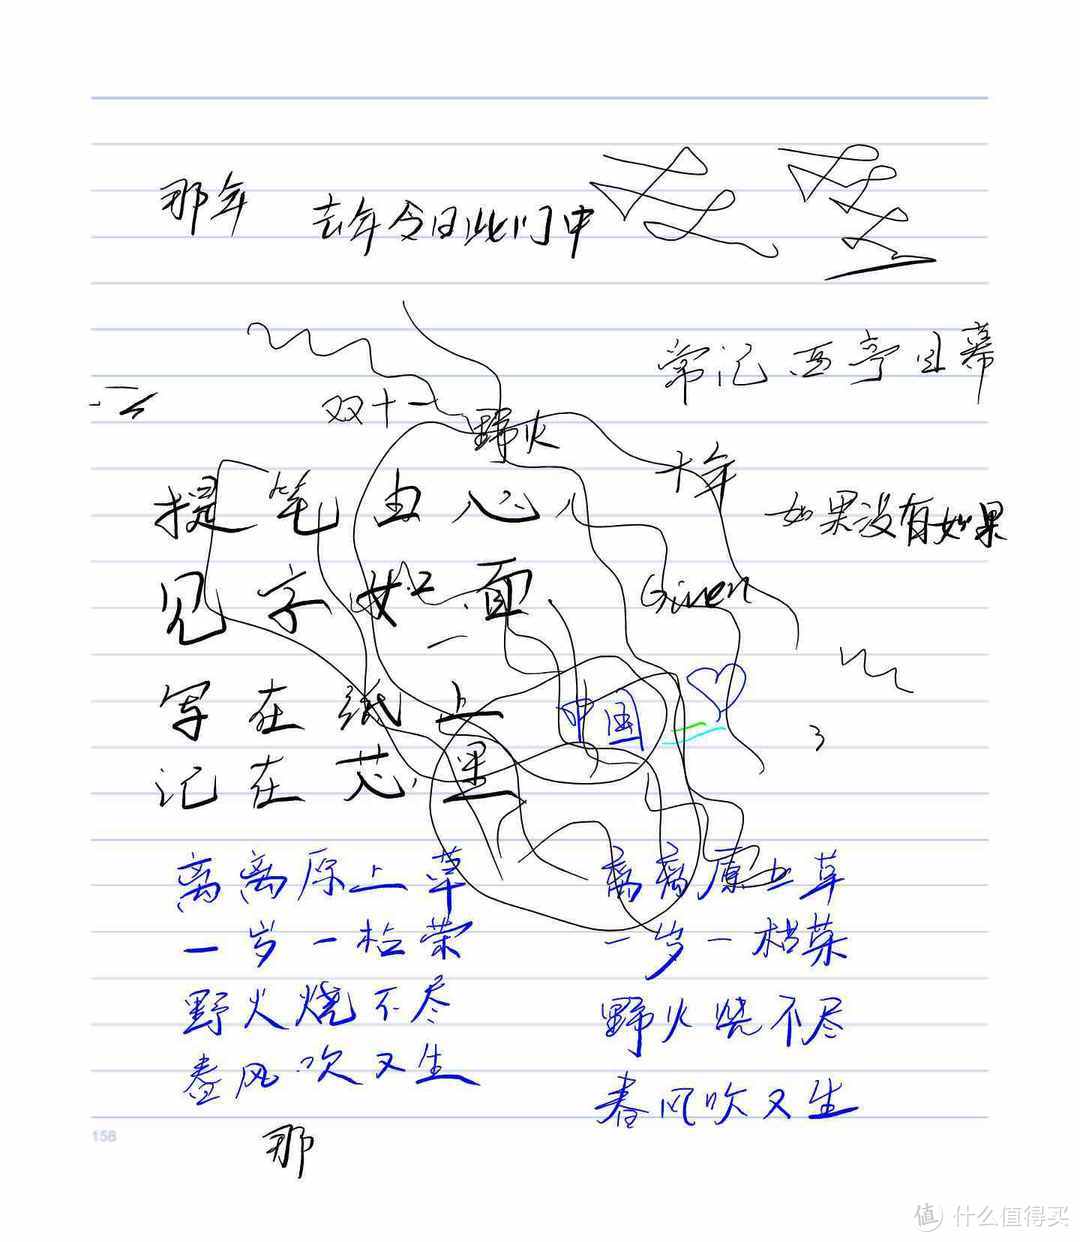 那年 去年今日此门中
常记西亭日暮
双十一
野火
十年
提笔由心，
如果没有如果
见字如面、
Given
写在纸上
中国
3
记在芯里
离离原上草 离离原上草
一岁一枯荣 一岁一枯荣
野火烧不尽 野火烧不尽
春风吹又生 春风吹又生
158
那
值 什么值得买